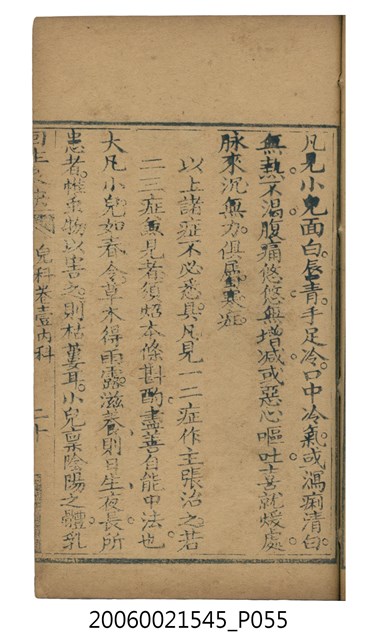 凡見小兒面白唇青手足冷口中冷氣或瀉痢清白
無熱不渴腹痛悠悠無增減或惡心嘔吐喜就煖處
脉來沉無力俱虛寒症
以上諸症不必悉具凡見一二症作主張治之若
二三症兼見者須照本條斟酌盡善自能中法也
大凡小兒如春令草木得雨露滋養則日生夜長所
患者惟虫物以害之則枯萎耳小兒禀陰陽之體乳
回生 兒科卷壹內科 二十
20060021545_P055